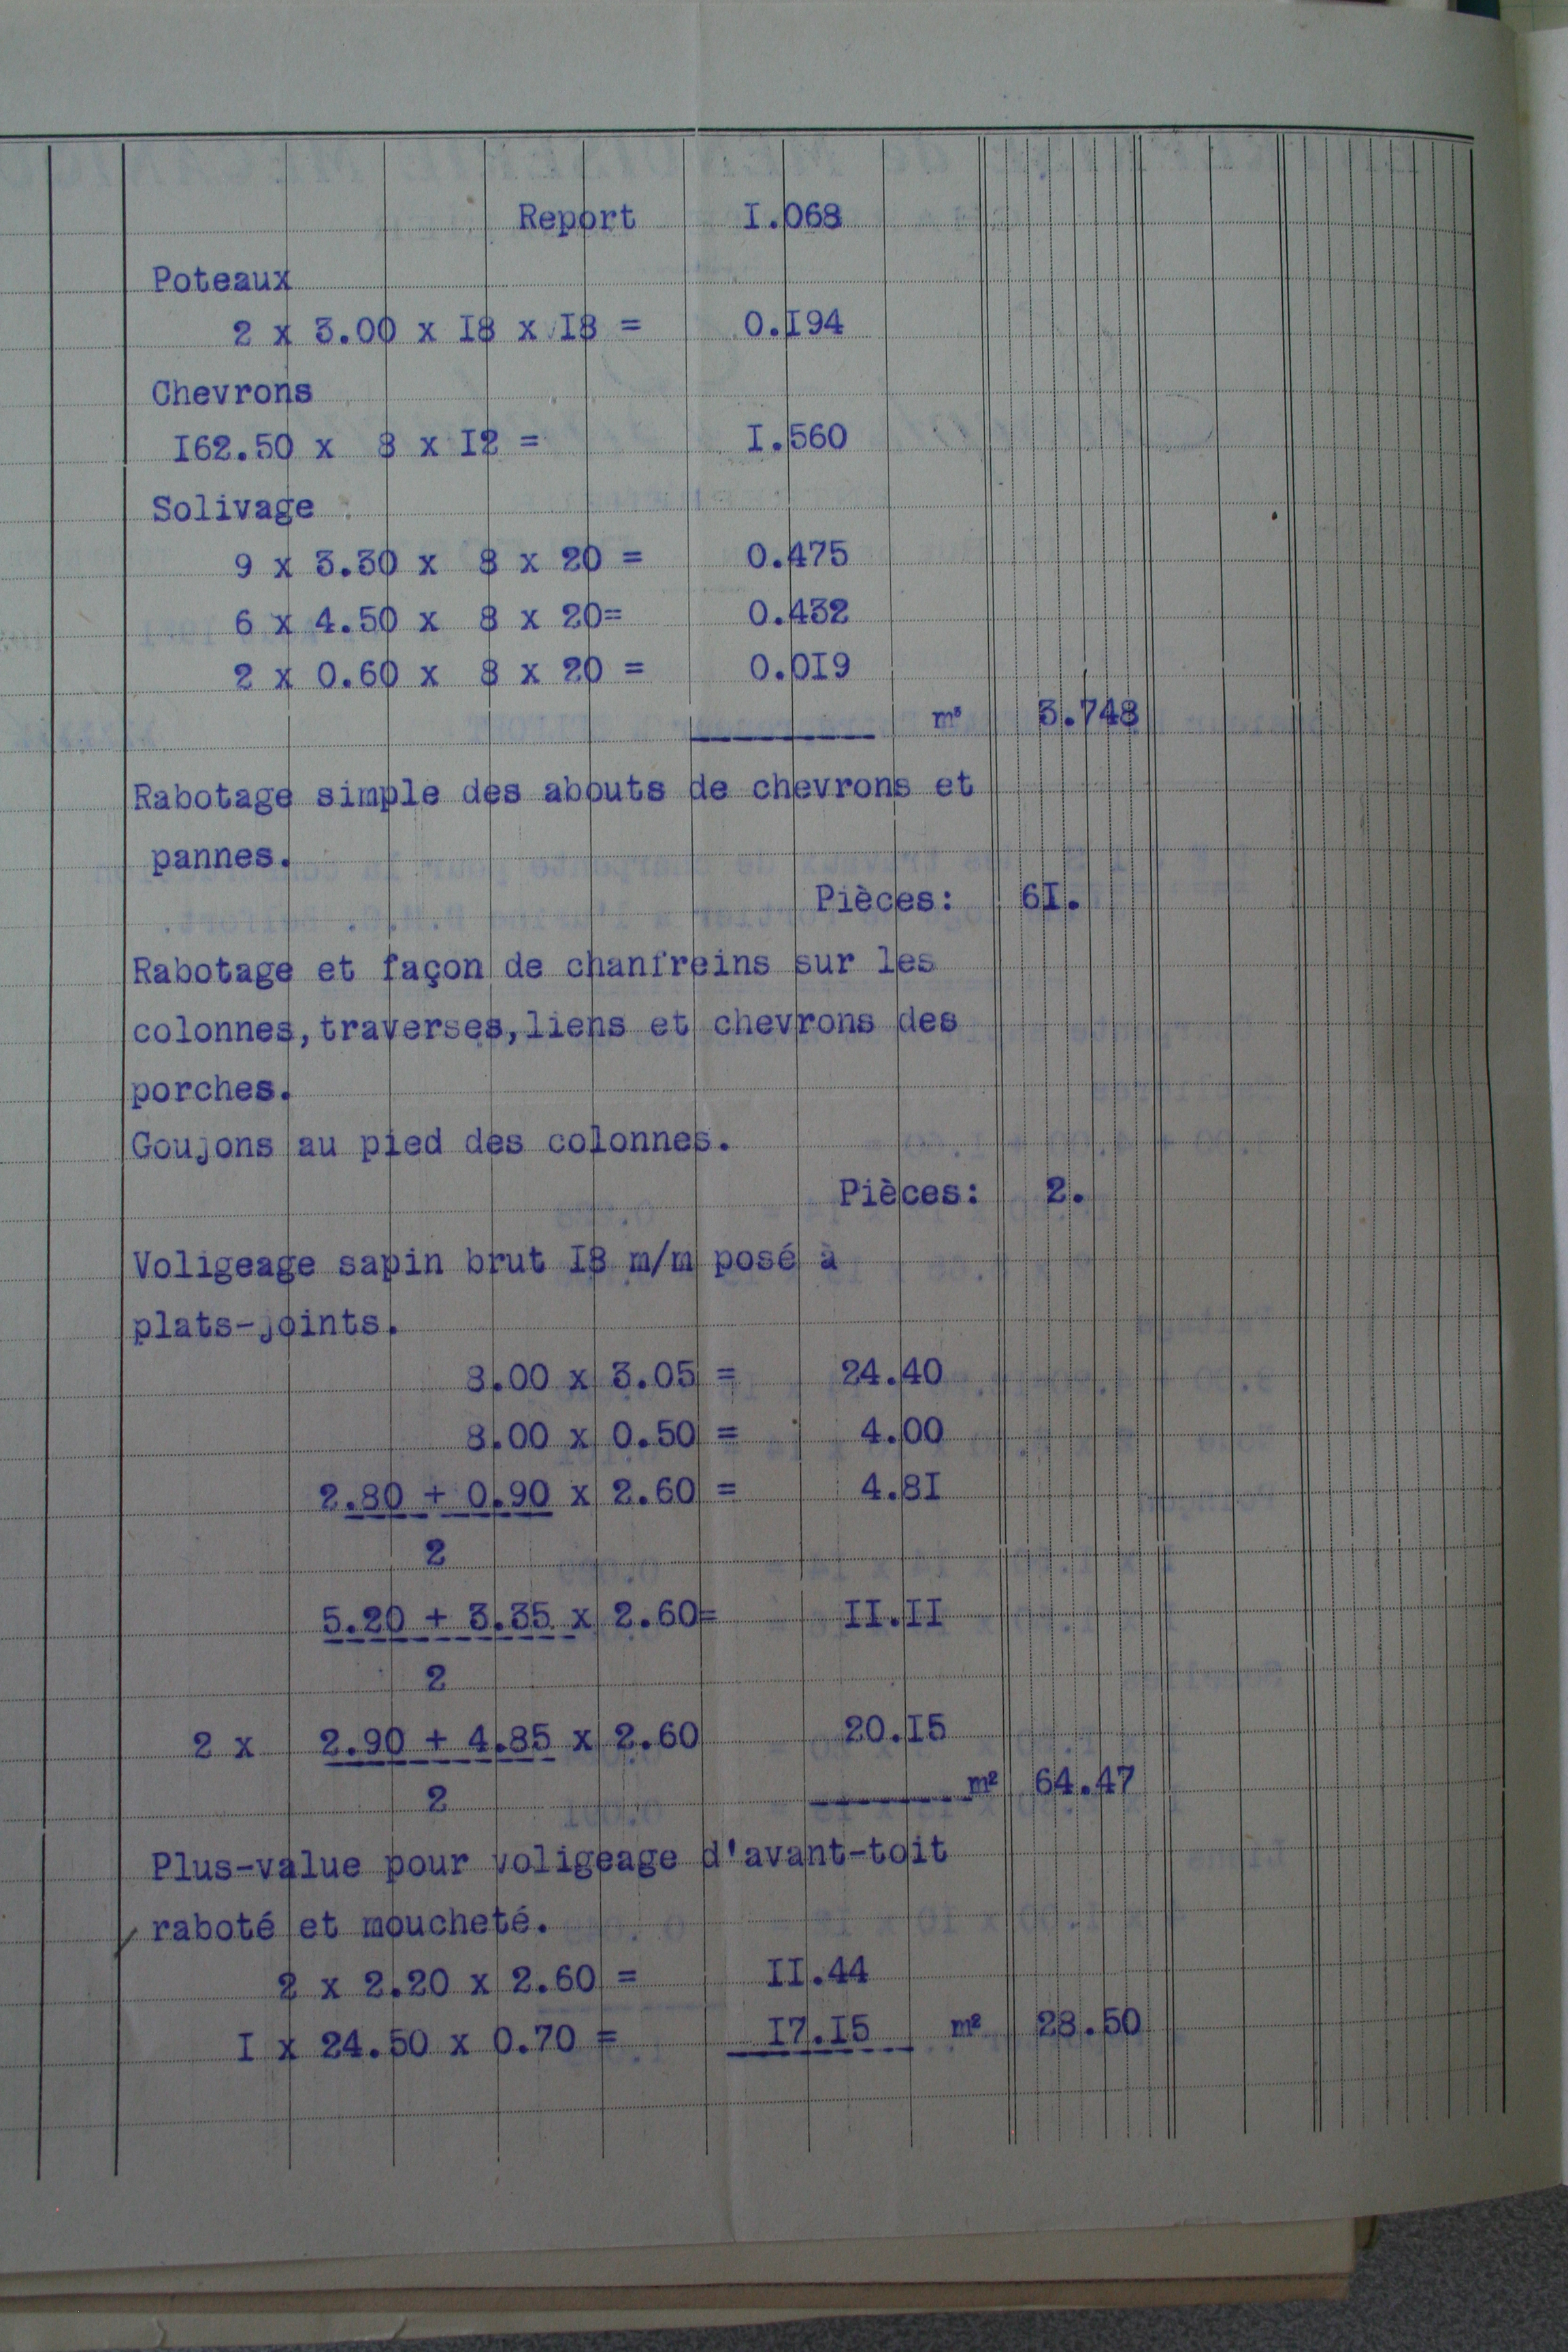 Report I.068
Poteaux
2 x 3.00 x I8 x I8 = 0.I94
Chevrons
I62.50 x 8 x I2 = I.560
Solivage
9 x 3.30 x 8 x 20 = 0.475
6 x 4.50 x 8 x 20= 0.432
2 x 0.60 x 8 x 20 = 0.0I9
m³ 3.748
Rabotage simple des abouts de chevrons et
pannes.
Pièces: 6I.
Rabotage et façon de chanfreins sur les
colonnes,traverses,liens et chevrons des
porches.
Goujons au pied des colonnes.
Pièces: 2.
Voligeage sapin brut I8 m/m posé à
plats-joints.
8.00 x 3.05 = 24.40
8.00 x 0.50 = 4.00
2.80 + 0.90 x 2.60 = 4.8I
2
5.20 + 3.35 x 2.60= II.II
2
2 x 2.90 + 4.85 x 2.60 20.I5
2
m² 64.47
Plus-value pour voligeage d'avant-toit
raboté et moucheté.
2 x 2.20 x 2.60 = II.44
I x 24.50 x 0.70 = I7.I5 m² 28.50